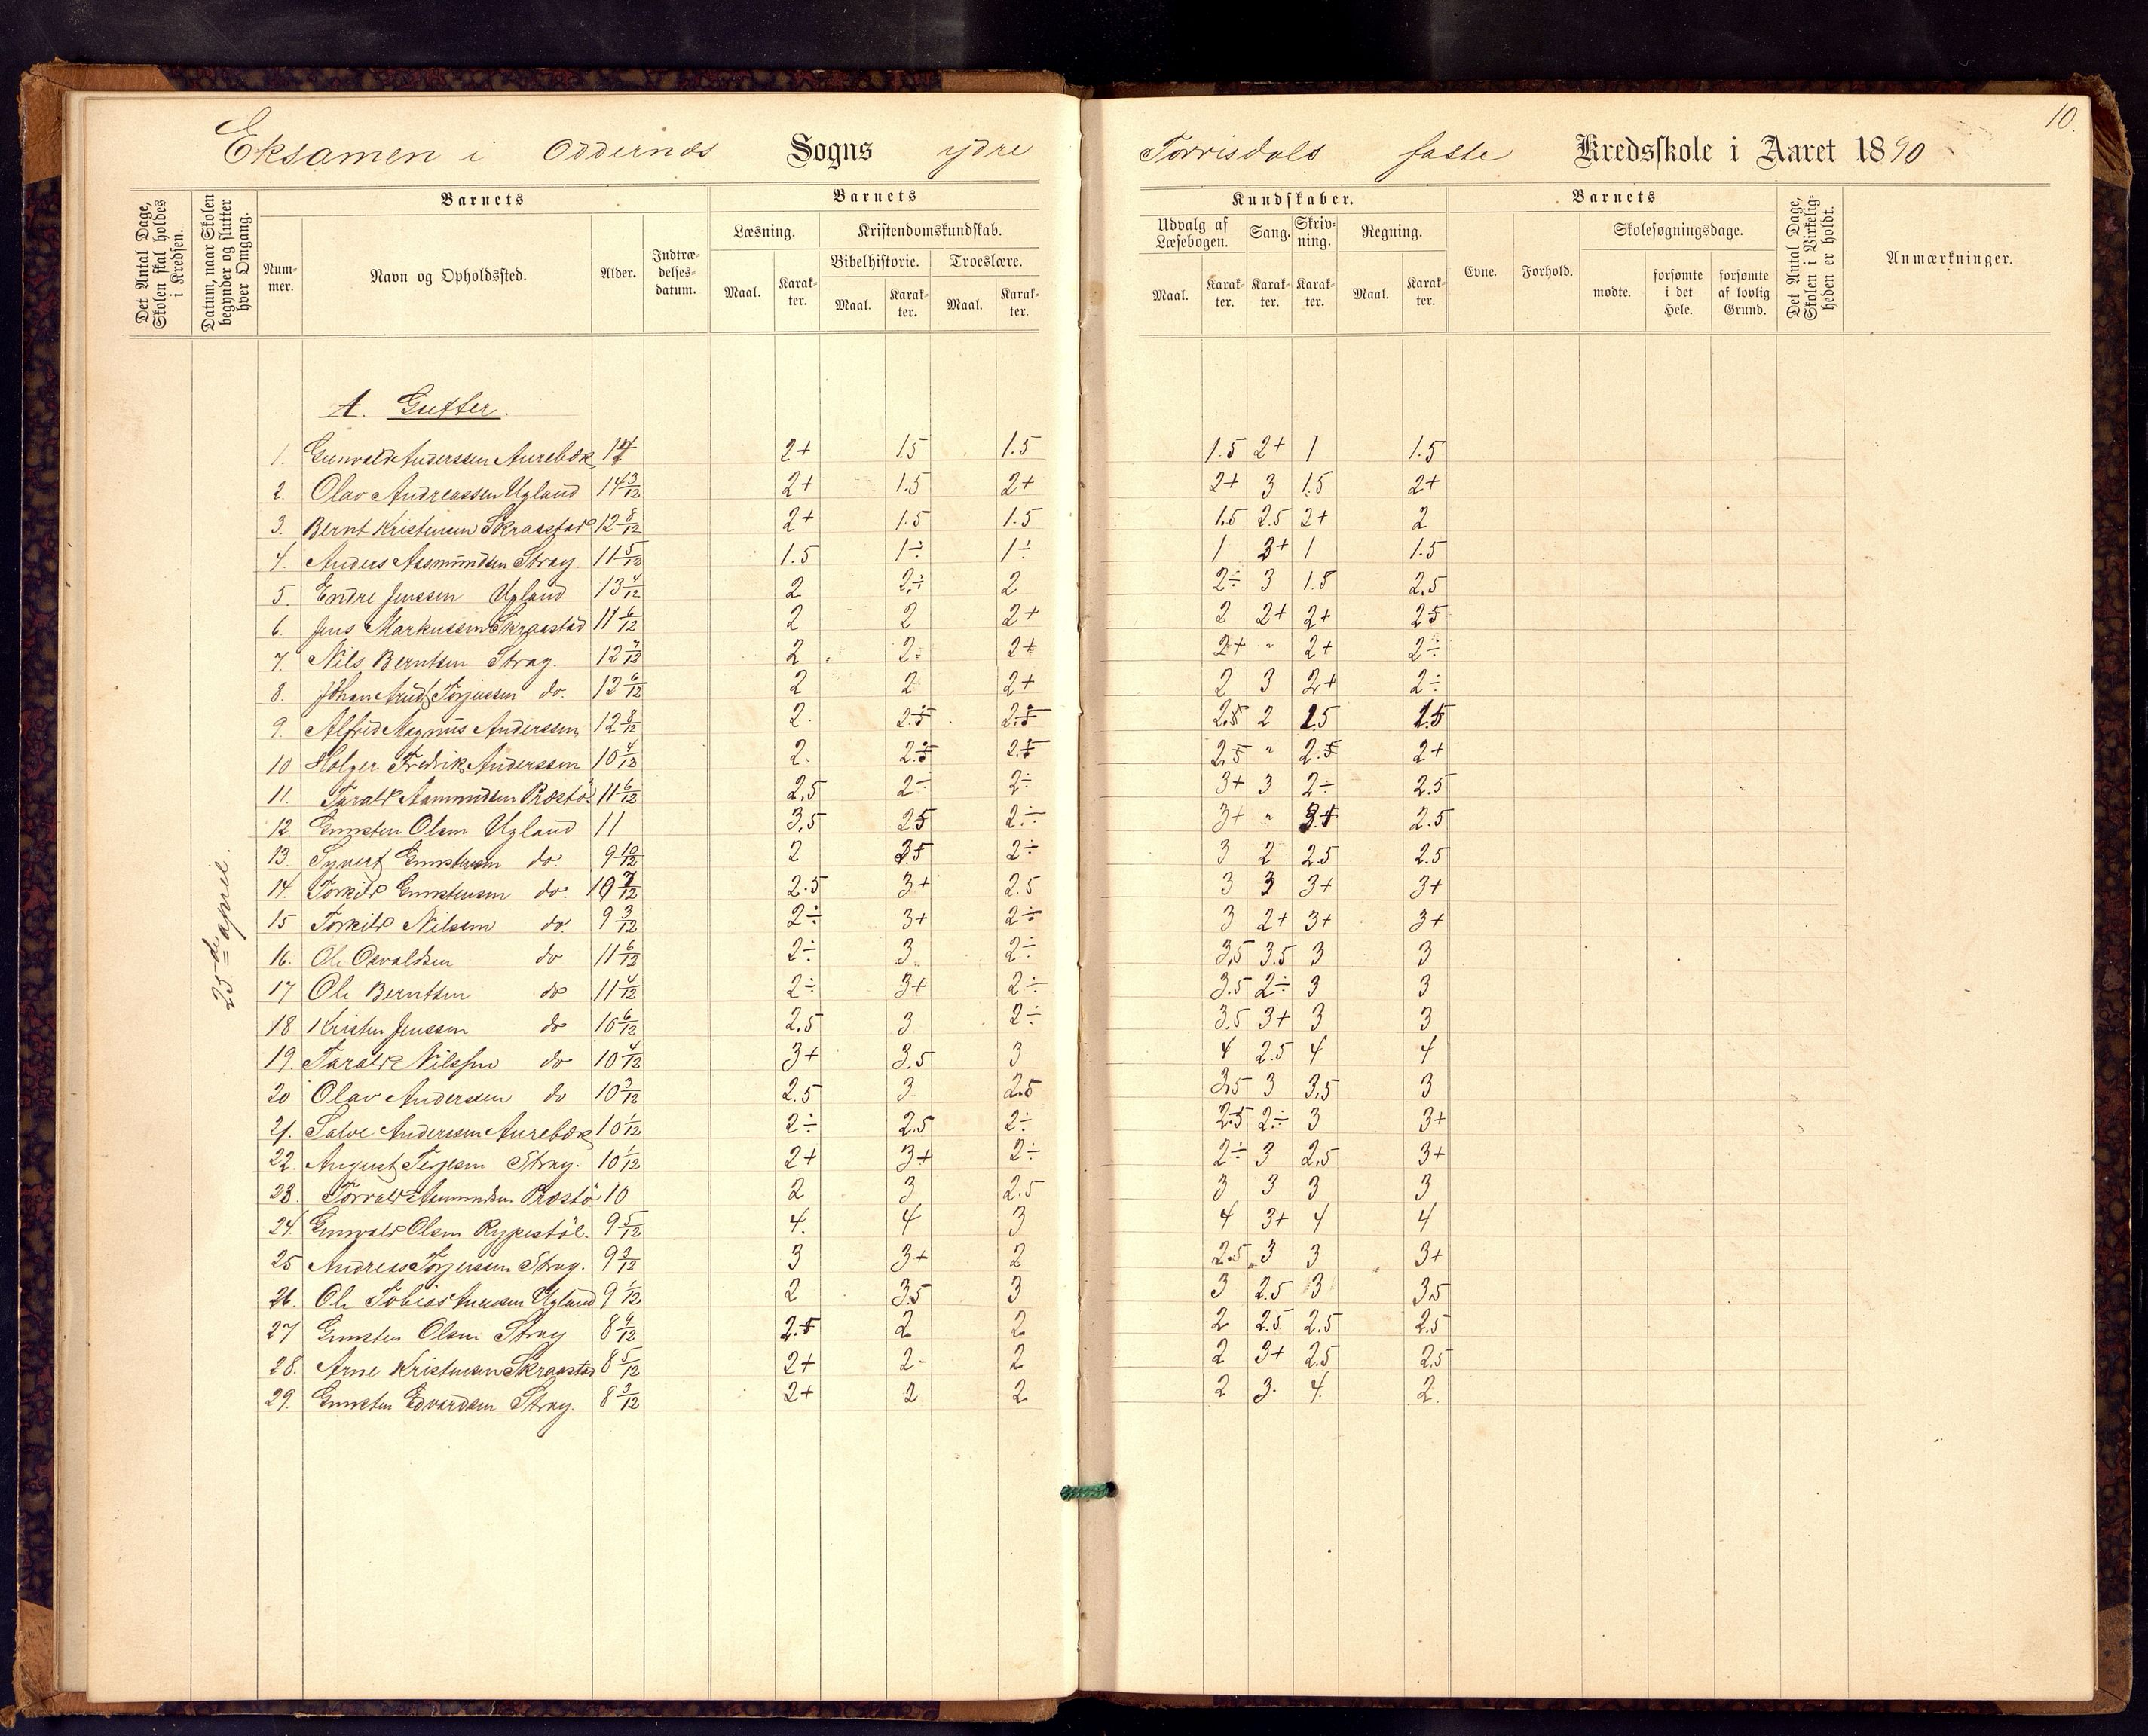 10.
Eksamen i Oddernes Sogns ydre Torrisdals faste Kredsskole i Aaret 1890
Det Antal Dage, Skolen skal holdes i Kredsen.
Datum, naar Skolen begynder og slutter hver Omgang.
Barnets
Num-mer.
Navn og Opholdssted.
Alder.
Indtræ-delses-datum.
Barnets Kundskaber.
Læsning.
Maal. Karak-ter.
Kristendomskundskab.
Bibelhistorie. Troeslære.
Maal. Karak-ter. Maal. Karak-ter.
Udvalg af Læsebogen. Sang. Skriv-ning. Regning.
Maal. Karak-ter. Karak-ter. Karak-ter. Maal. Karak-ter.
Barnets
Evne. Forhold.
Skolesøgningsdage.
mødte. forsømte i det Hele. forsømte af lovlig Grund.
Det Antal Dage, Skolen i Virkelig-heden er holdt.
Anmærkninger.
25de april.
A. Gutter.
1. Gunvald Anderssen Aurebæk 14 2+ 1.5 1.5 1.5 2+ 1 1.5
2. Olav Andreassen Ugland 14 3/12 2+ 1.5 2+ 2+ 3 1.5 2+
3. Bernt Kristensen Skraastad 12 8/12 2+ 1.5 1.5 1.5 2.5 2+ 2
4. Anders Aasmundsen Stray. 11 5/12 1.5 1÷ 1÷ 1 2+ 1 1.5
5. Endre Jenssen Ugland 13 4/12 2 2÷ 2 2÷ 3 1.5 2.5
6. Jens Markussen Skraastad 11 6/12 2 2 2+ 2 2+ 2+ 2.5
7. Nils Berntsen Stray. 12 7/12 2 2. 2+ 2+ " 2+ 2÷
8. Johan Arndt Torjussen do. 12 6/12 2 2 2+ 2 3 2+ 2÷
9. Alfred Magnus Anderssen 12 8/12 2. 2.5 2.5 2.5 2 2.5 2.5
10 Holger Fredrik Anderssen 10 4/12 2. 2.5 2.5 2.5 " 2.5 2+
11. Tarald Aamundsen Præstø. 11 6/12 2.5 2÷ 2÷ 3+ 3 2÷ 2.5
12. Gunsten Olsen Ugland 11 3.5 2.5 2÷ 3+ " 3+ 2.5
13. Syvert Gunstensen do. 9 10/12 2 2.5 2÷ 3 2 2.5 2.5
14. Torkild Gunstensen do. 10 7/12 2.5 3+ 2.5 3 3 3+ 3+
15 Torkild Nilsen do. 9 3/12 2÷ 3+ 2÷ 3 2+ 3+ 3+
16. Ole Osvaldsen do 11 6/12 2÷ 3. 2÷ 3.5 3.5 3 3
17 Ole Berntsen do 11 4/12 2÷ 3+ 2÷ 3.5 2÷ 3 3
18 Kristen Jenssen do 10 6/12 2.5 3 2÷ 3.5 3+ 3 3
19. Tarald Nilssen do 10 4/12 3+ 3.5 3 4 2.5 4 4
20 Olav Anderssen do 10 3/12 2.5 3 2.5 3.5 3 3.5 3
21. Salve Anderssen Aurebæk 10 1/12 2÷ 2.5 2÷ 2.5 2÷ 3 3+
22. August Terjesen Stray. 10 1/12 2+ 3+ 2÷ 2÷ 3 2.5 3+
23. Torvald Aamundsen Præstø 10 2 3 2.5 3 3 3 3
24. Gunvald Olsen Rypestøl. 9 5/12 4. 4 3 4 3+ 4 4
25 Andreas Torjussen Stray. 9 2/12 3 3+ 2 2.5 3 3 3+
26. Ole Tobias Ugland 9 1/12 2 3.5 3 3 2.5 3 3.5
27 Gunsten Olsen Stray 8 9/12 2.5 2 2 2 2.5 2.5 2.5
28. Arne Kristensen Skraastad 8 5/12 2+ 2- 2 2 3+ 2.5 2.5
29. Gunsten Edvardsen Stray. 8 3/12 2+ 2 2 2 3. 4. 2.